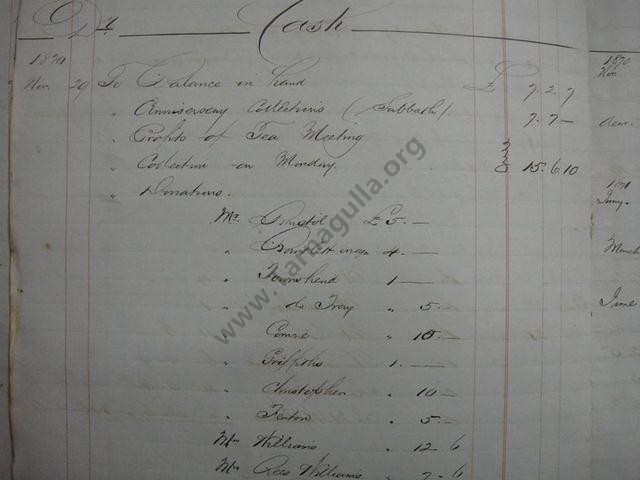 Dr Cash
1870 1870
Nov. 29 To Balance in hand £ 7. 2. 7 Nov
" Anniversary Collections (Sabbath). 7. 7 — Decr.
" Profits of Tea Meeting
" Collection on Monday 15. 6. 10
" Donations. 1871
Mr. £ 5. — Jany.
" 4. — March
" Townshend 1 —
" do Troy " 5. — June
" Comrie " 10 —
" Griffiths 1. —
" Christopher " 10 —
" Fenton " 5. —
Mrs Williams " 12. 6
Mrs Rees Williams " 7. 6
www.tarnagulla.org